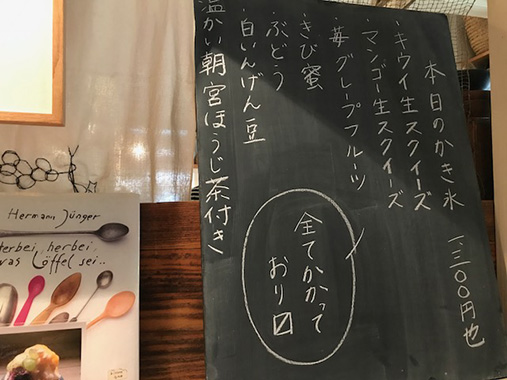 本日のかき氷 一三〇〇円也
・キウイ生スクイーズ
・マンゴー生スクイーズ
・苺グレープフルーツ
・きび蜜
・ぶどう
・白いんげん豆
温かい朝宮ほうじ茶付き
全てかかって
おり〼
Hermann Jünger
herbei, herbei,
was Löffel sei..